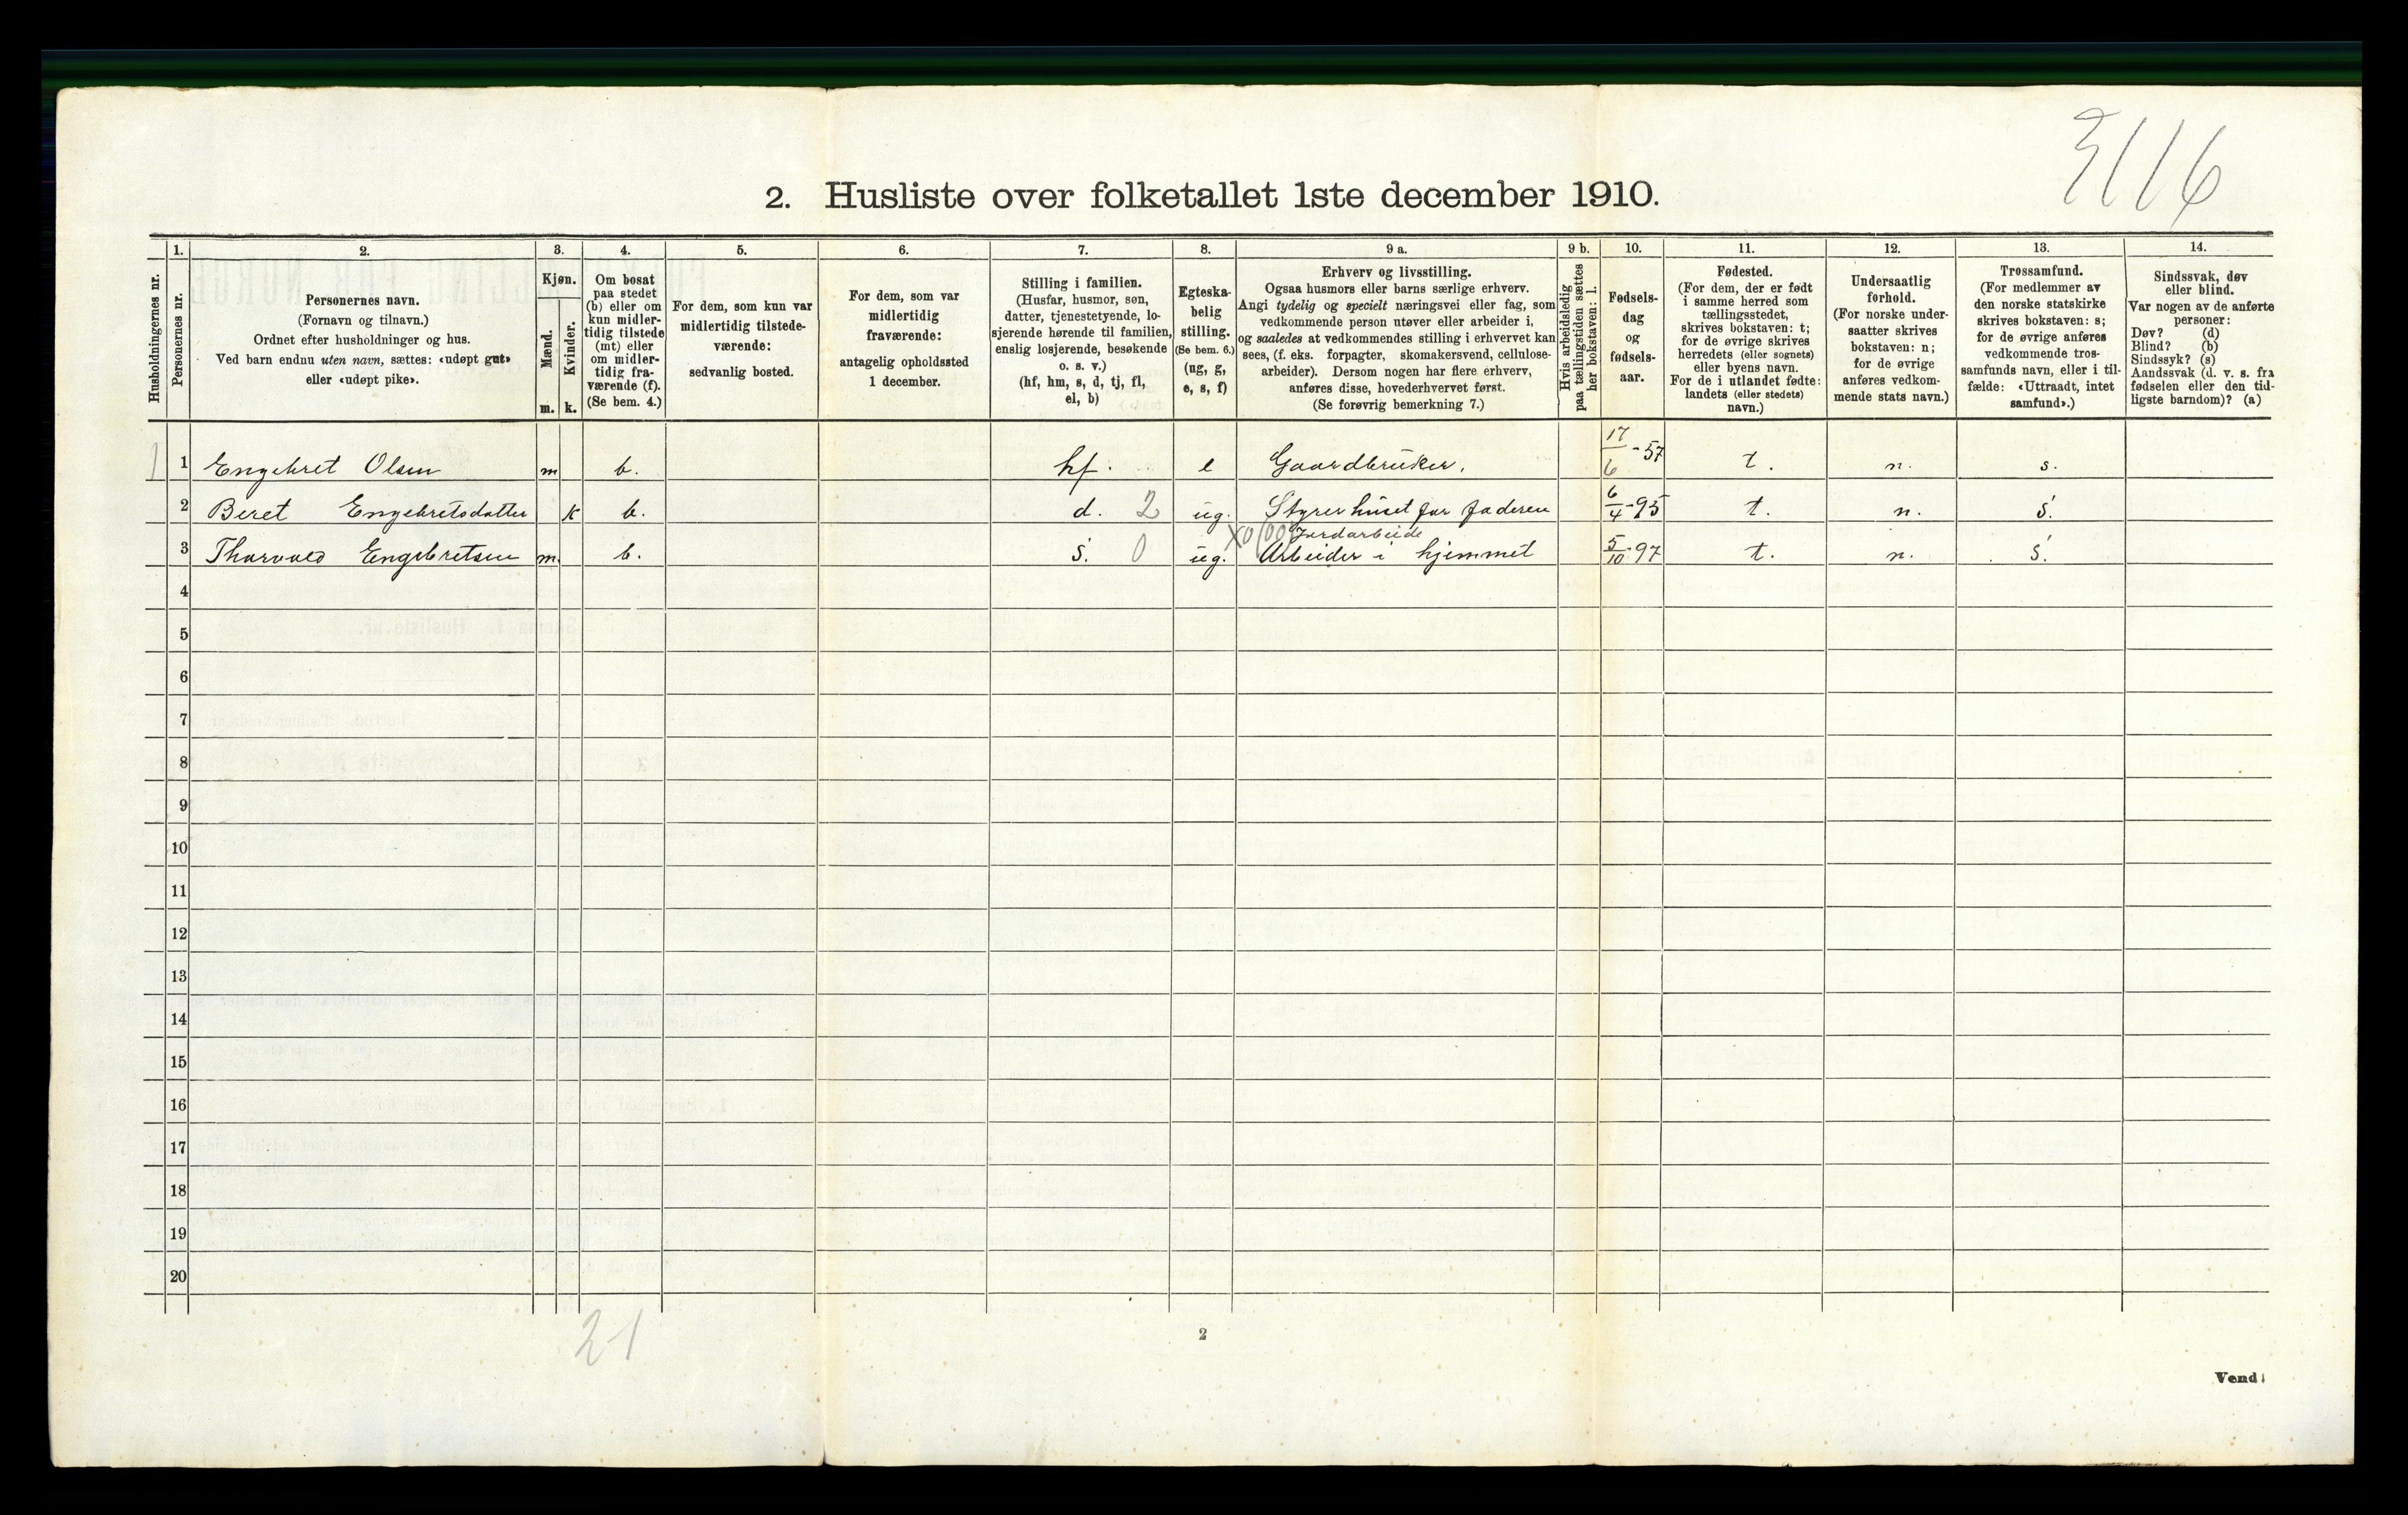 3116
2. Husliste over folketallet 1ste december 1910.
Husholdningernes nr.
1.
Personernes nr.
2.
Personernes navn.
(Fornavn og tilnavn.)
Ordnet efter husholdninger og hus.
Ved barn endnu uten navn, sættes: «udøpt gut»
eller «udøpt pike».
3.
Kjøn.
Mænd.
m.
Kvinder.
k.
4.
Om bosat
paa stedet
(b) eller om
kun midler-
tidig tilstede
(mt) eller
om midler-
tidig fra-
værende (f).
(Se bem. 4.)
5.
For dem, som kun var
midlertidig tilstede-
værende:
sedvanlig bosted.
6.
For dem, som var
midlertidig
fraværende:
antagelig opholdssted
1 december.
7.
Stilling i familien.
(Husfar, husmor, søn,
datter, tjenestetyende, lo-
sjerende hørende til familien,
enslig losjerende, besøkende
o. s. v.)
(hf, hm, s, d, tj, fl,
el, b)
8.
Egteska-
belig
stilling.
(Se bem. 6.)
(ug, g,
e, s, f)
9 a.
Erhverv og livsstilling.
Ogsaa husmors eller barns særlige erhverv.
Angi tydelig og specielt næringsvei eller fag, som
vedkommende person utøver eller arbeider i,
og saaledes at vedkommendes stilling i erhvervet kan
sees, (f. eks. forpagter, skomakersvend, cellulose-
arbeider). Dersom nogen har flere erhverv,
anføres disse, hovederhvervet først.
(Se forøvrig bemerkning 7.)
9 b.
Hvis arbeidsledig
paa tællingstiden sættes
her bokstaven: l.
10.
Fødsels-
dag
og
fødsels-
aar.
11.
Fødested.
(For dem, der er født
i samme herred som
tællingsstedet,
skrives bokstaven: t;
for de øvrige skrives
herredets (eller sognets)
eller byens navn.
For de i utlandet fødte:
landets (eller stedets)
navn.)
12.
Undersaatlig
forhold.
(For norske under-
saatter skrives
bokstaven: n;
for de øvrige
anføres vedkom-
mende stats navn.)
13.
Trossamfund.
(For medlemmer av
den norske statskirke
skrives bokstaven: s;
for de øvrige anføres
vedkommende tros-
samfunds navn, eller i til-
fælde: «Uttraadt, intet
samfund».)
14.
Sindssvak, døv
eller blind.
Var nogen av de anførte
personer:
Døv? (d)
Blind? (b)
Sindssyk? (s)
Aandssvak (d. v. s. fra
fødselen eller den tid-
ligste barndom)? (a)
1 1 Engebret Olsen m b. hf. e Gaardbruker. 17/6-57 t. n. s.
2 Beret Engebretsdatter k b. d. 2 ug. Styrer huset for faderen 6/4-95 t. n. s.
Jordarbeide
3 Thorvald Engebretsen m. b. s. 0 ug. Arbeider i hjemmet 5/10-97 t. n. s.
4
5
6
7
8
9
10
11
12
13
14
15
16
17
18
19
20
21
2
Vend!